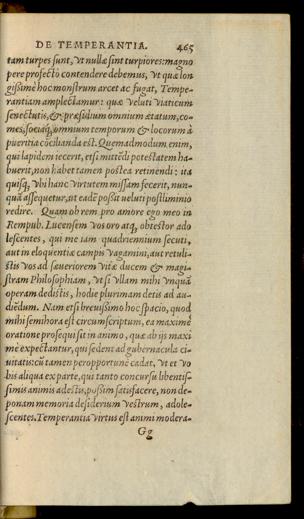 DE TEMPERANTIA. 465
tam turpes sunt, vt nullæ sint turpiores: magno
pere profectò contendere debemus, vt quæ lon
gissimè hoc monstrum arcet ac fugat, Tempe-
rantiam amplectamur: quæ veluti viaticum
senectutis, & præsidium omnium ætatum, co-
mes, sociáq́, omnium temporum & locorum à
pueritia cōcilianda est. Quemadmodum enim,
qui lapidem iecerit, etsi mittēdi potestatem ha-
buerit, non habet tamen postea retinendi: ita
quisq́, vbi hanc virtutem missam fecerit, nun-
quā assequetur, vt ead̄ possit veluti postliminio
redire. Quam ob rem pro amore ego meo in
Rempub. Lucensem vos oro atq́, obtestor ado
lescentes, qui me iam quadriennium secuti,
aut in eloquentiæ campis vagamini, aut retuli-
stis vos ad seueriorem vitæ ducem & magi-
stram Philosophiam, vt si vllam mihi vnquā
operam dedistis, hodie plurimam detis ad au-
diēdum. Nam etsi breuissimo hoc spacio, quod
mihi semihora est circumscriptum, ea maximè
oratione prosequi sit in animo, quæ ab ijs maxi
mè expectantur, qui sedent ad gubernacula ci-
uitatis: cū tamen peropportunè cadat, vt et vo
bis aliqua ex parte, qui tanto concursu libentis-
simis animis adestis, possim satisfacere, non de-
ponam memoria desiderium vestrum, adole-
scentes. Temperantia virtus est animi modera-
Gg